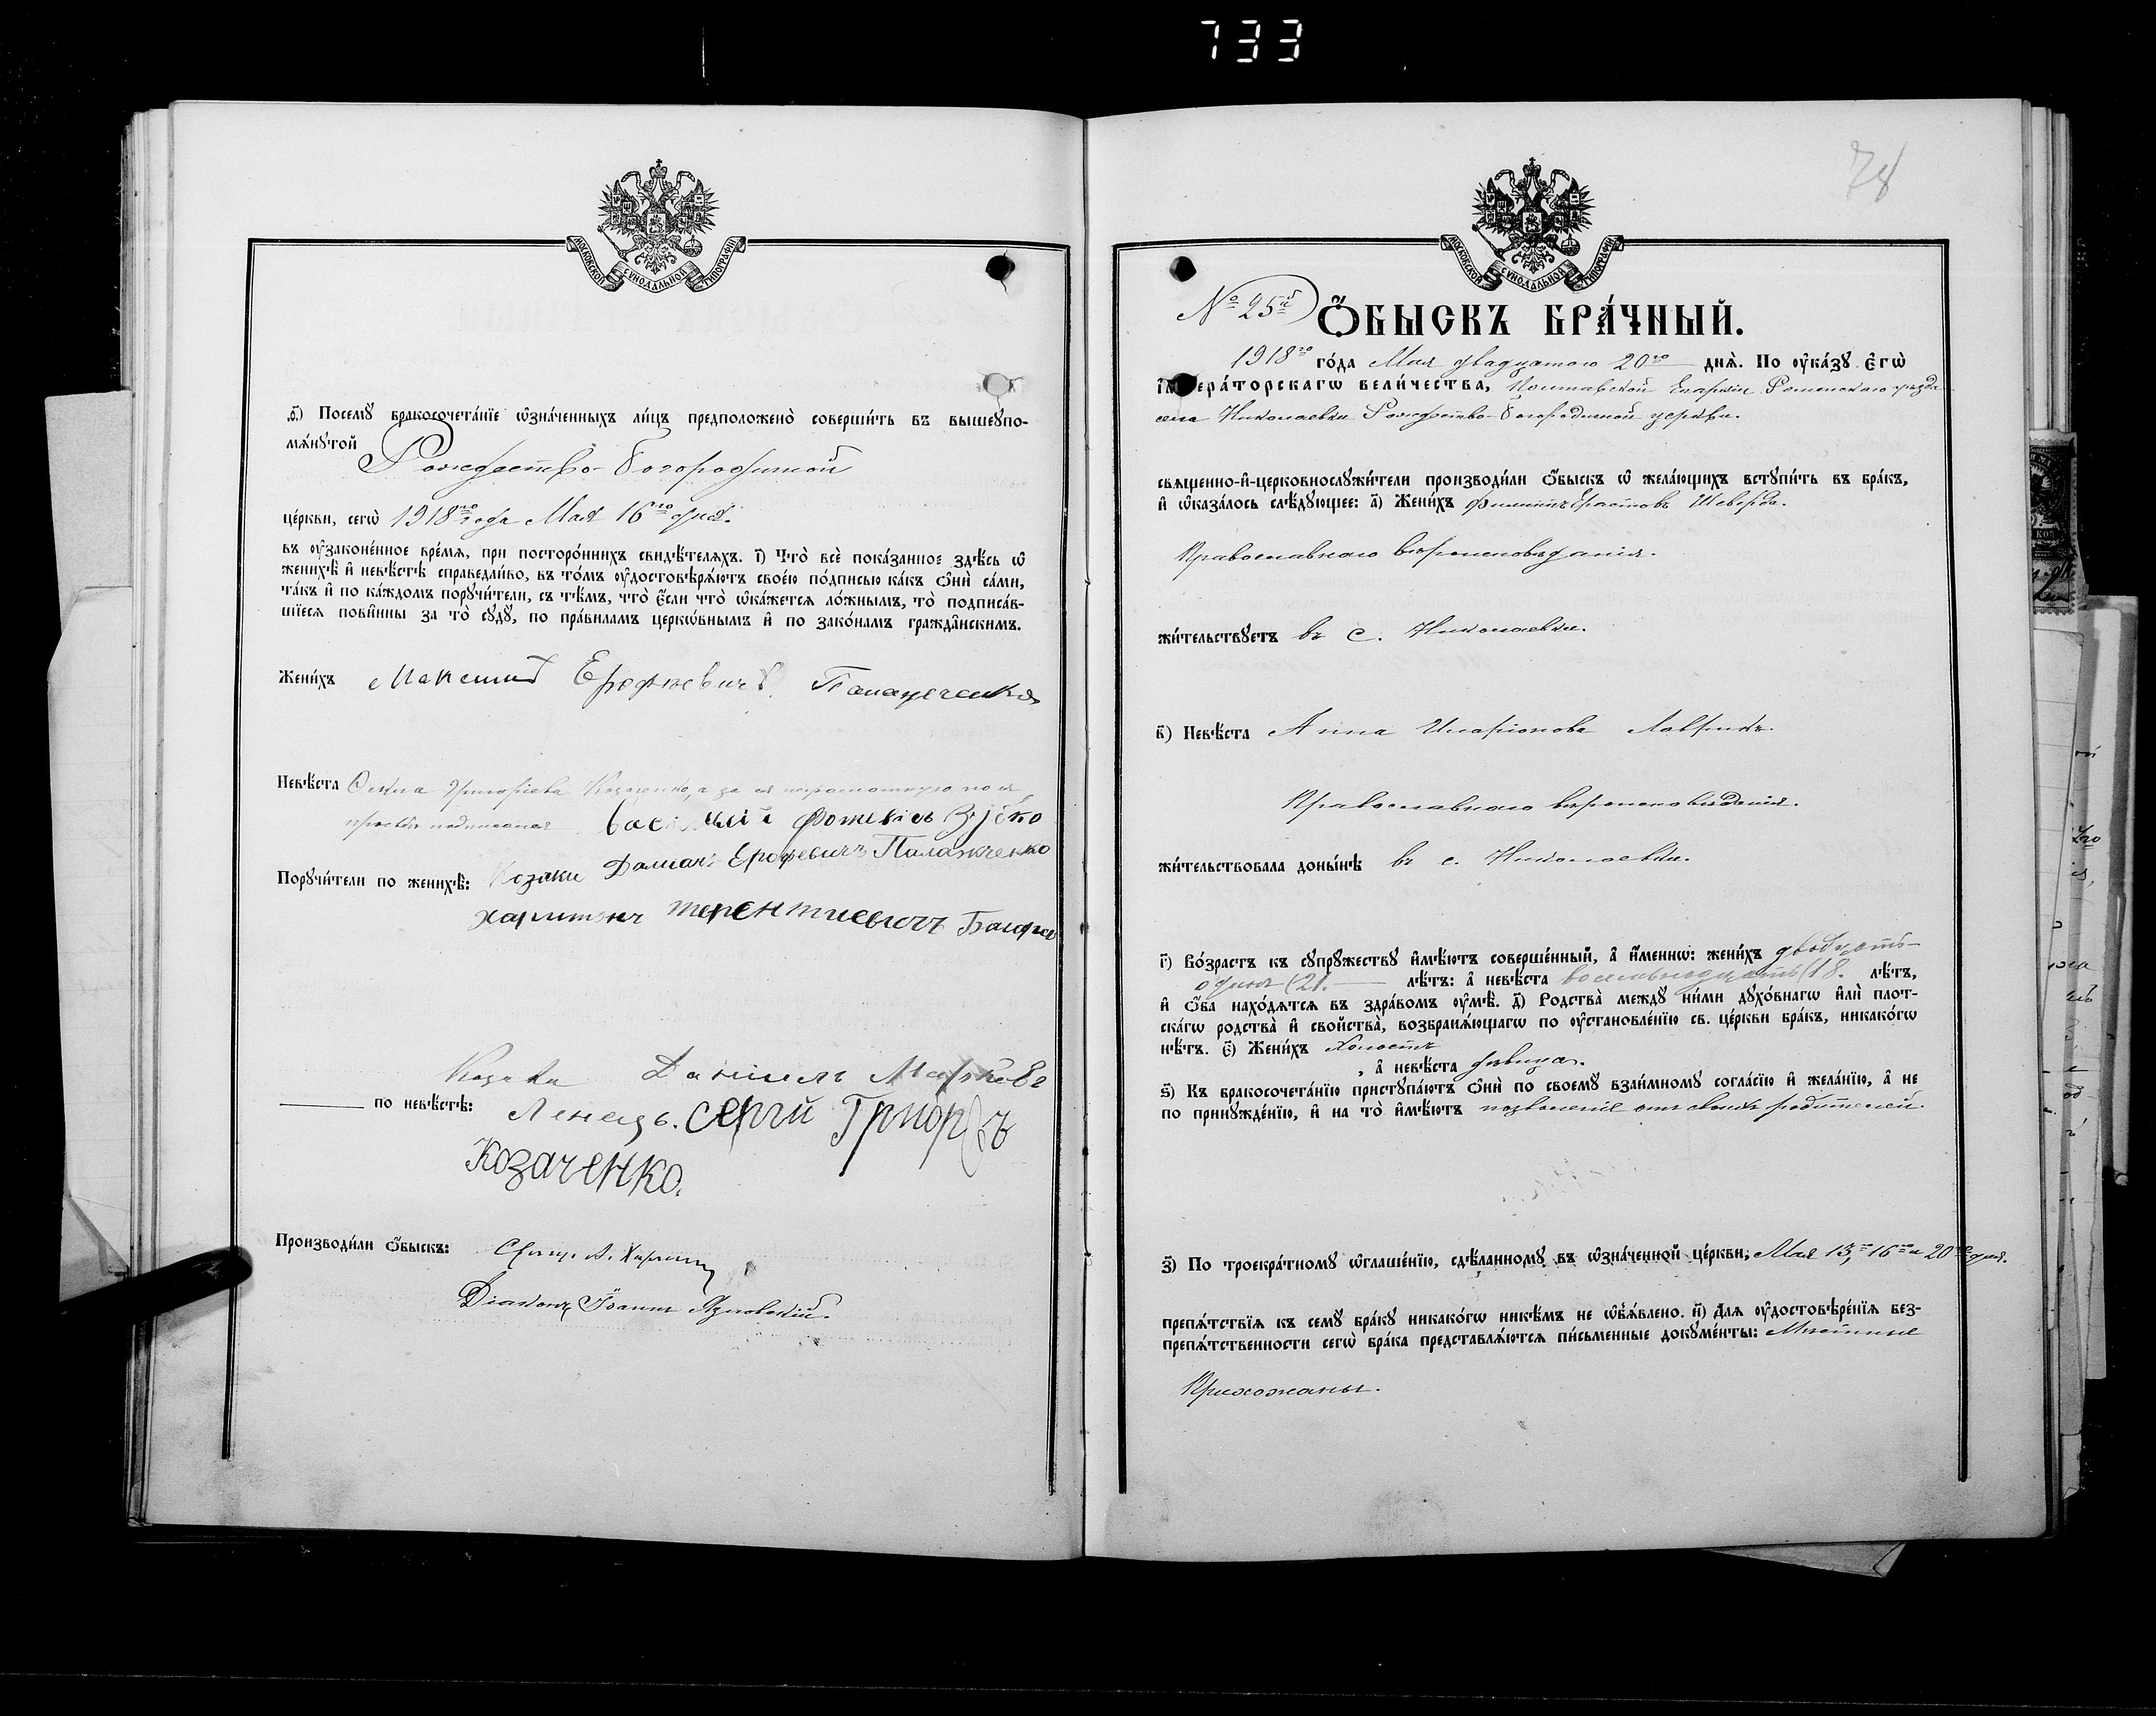 733
МОСКОВСКОЙ СѴНОДАЛЬНОЙ ТИПОГРАФІИ
ѳ҃) Посемꙋ бракосочета́нїе ѡзна́ченныхъ ли́цъ предположено̀ соверши́ть въ вышеꙋпо-
мѧ́нꙋтой Рождество-Богородичной
це́ркви, сегѡ̀ 1918го года Мая 16го дня.
въ ᲂу҆зако́ненное вре́мѧ, при посторо́ннихъ свидѣ́телѧхъ. і҃) Что̀ всѐ пока́занное здѣ́сь ѡ҆
женихѣ̀ и҆ невѣ́стѣ справедли́во, въ то́мъ ᲂу҆достовѣрѧ́ютъ свое́ю по́дписью ка́къ ѻ҆нѝ са́ми,
та́къ и҆ по ка́ждомъ порꙋчи́тели, съ тѣ́мъ, что̀ є҆́сли что̀ ѡ҆ка́жетсѧ ло́жнымъ, то̀ подписа́в-
шїесѧ пови́нны за то̀ сꙋдꙋ̀, по пра́виламъ церко́внымъ и҆ по зако́намъ гражда́нскимъ.
Жени́хъ Максимъ Ерофѣевичъ
Невѣ́ста Григоріева Козаченко, а за ея неграмотную по ея
просьбѣ подписался
Порꙋчи́тели по женихѣ̀: Козаки Даміанъ Ерофеевичъ Палажченко
Харитонъ Терентиевичъ
Козаки Даніилъ
по невѣ́стѣ: Ленецъ. Сергій
Козаченко.
Производи́ли ѻ҆́быскъ: Свящ. А.
Діаконъ Іоаннъ
78
МОСКОВСКОЙ СѴНОДАЛЬНОЙ ТИПОГРАФІИ
№ 25й
Ѻ҆́БЫСКЪ БРА́ЧНЫЙ.
1918го го́да Мая двадцатого 20го днѧ̀. По ᲂу҆ка́зꙋ є҆гѡ̀
і҆мпера́торскагѡ вели́чества, Полтавской Епархіи Роменскаго уѣзда
села Николаевки Рождество-Богородичной церкви.
свѧщенно-и҆-церковнослꙋжи́тели производи́ли ѻ҆́быскъ ѡ҆ жела́ющихъ встꙋпи́ть въ бра́къ,
и҆ ѡ҆каза́лось слѣ́дꙋющее: а҃) Жени́хъ Филиппъ Ерастовъ Шеверда.
Православнаго вѣроисповѣданія.
жи́тельствꙋетъ въ с. Николаевки.
в҃) Невѣ́ста Анна Иларіонова Лаврикъ.
Православнаго вѣроисповѣданія.
жи́тельствовала доны́нѣ въ с. Николаевки.
г҃) Во́зрастъ къ сꙋпрꙋ́жествꙋ и҆мѣ́ютъ соверше́нный, а҆ и҆́менно: жени́хъ двадцать
одинъ (21. лѣ́тъ: а҆ невѣ́ста восемнадцать (18. лѣ́тъ,
и҆ ѻ҆́ба нахо́дѧтсѧ въ здра́вомъ ᲂу҆мѣ̀. д҃) Родства̀ междꙋ ни́ми дꙋхо́внагѡ и҆лѝ плот-
ска́гѡ родства̀ и҆ сво́йства, возбранѧ́ющагѡ по ᲂу҆становле́нїю св. це́ркви бра́къ, никако́гѡ
нѣ́тъ. є҃) Жени́хъ холостъ
, а҆ невѣ́ста дѣвица.
ѕ҃) Къ бракосочета́нїю пристꙋпа́ютъ ѻ҆нѝ по своемꙋ̀ взаи́мномꙋ согла́сїю и҆ жела́нїю, а҆ не
по принꙋжде́нїю, и҆ на то̀ и҆мѣ́ютъ позволеніе отъ своихъ родителей.
з҃) По троекра́тномꙋ ѡ҆глаше́нїю, сдѣ́ланномꙋ въ ѡ҆зна́ченной це́ркви, Мая 13, 16го и 20го дня.
препѧ́тствїѧ къ семꙋ̀ бра́кꙋ никако́гѡ никѣ́мъ не ѡ҆б̾ѧ́влено. и҃) Длѧ ᲂу҆достовѣре́нїѧ без-
препѧ́тственности сегѡ̀ бра́ка представлѧ́ютсѧ пи́сьменные докꙋме́нты: Мѣстные
Прихожаны.